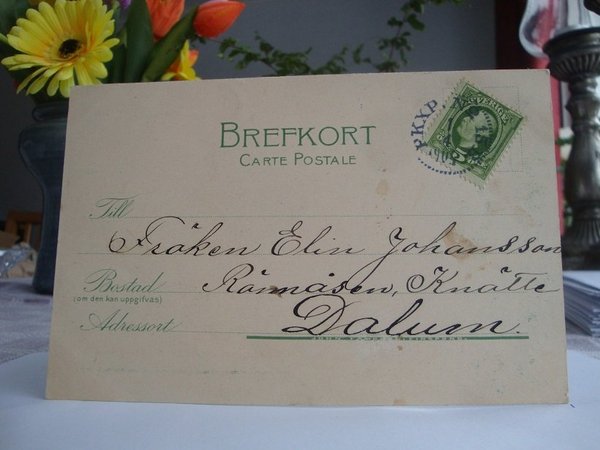 BREFKORT
CARTE POSTALE
PKXP
SVERIGE
Till
Fröken Elin Johansson
Bostad
(om den kan uppgifvas)
Rönnåsen, Knätte
Adressort
Dalum.